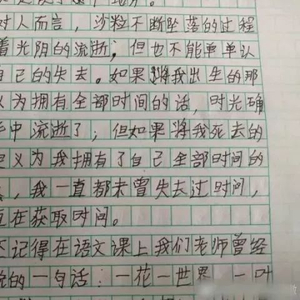 对人而言，沙粒不断坠落的过程
着光阴的流逝，但也不能单单从
自己的失去。如果将我出生的那
义为拥有全部时间的话，时光确
中流逝了；但如果将我死去的
定义为我拥有了自己全部时间的
，我一直都未曾失去过时间，
在获取时间。
记得在语文课上我们老师曾经
的一句话：一花一世界，一叶